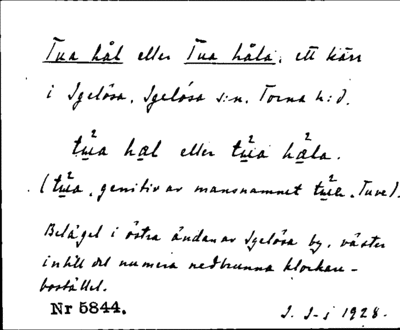 Tua hål eller Tua håla, ett kärr
i Igelösa, Igelösa s:n, Torna h:d.
tùa hal eller tùa håla.
(tùa, genitiv av mansnamnet tùe, Tuve).
Beläget i östra ändan av Igelösa by, väster
intill det numera nedbrunna klockare-
bostället.
Nr 5844.
1928.